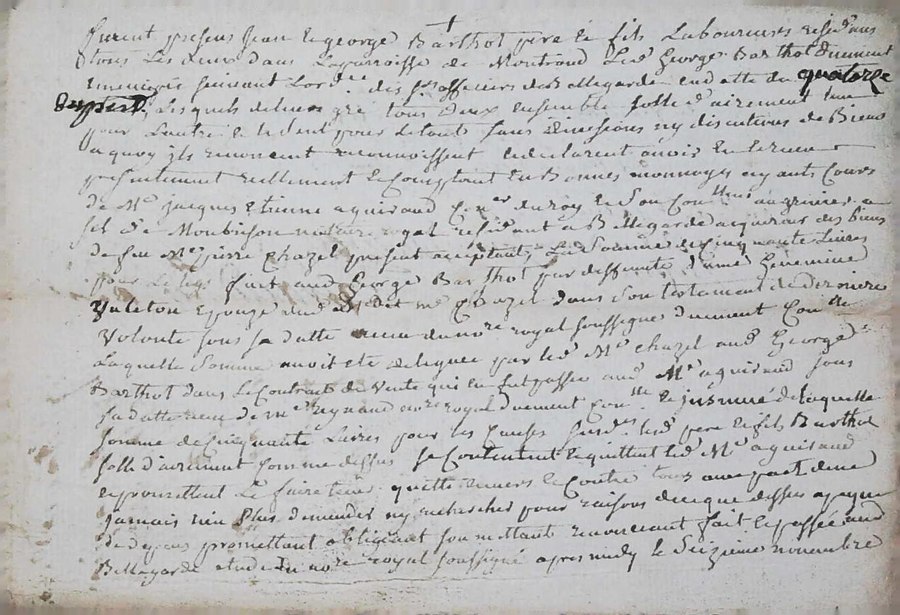 furent presens Jean et george Barthot pere et fils Laboureurs residants
tous Les deux dans La parroisse de Montrond Led George Barthot duement
emencipé suivant Lord.ce des S.rs officiers de Bellegarde en datte du quatorze
Lesquels de leur gré tous deux ensemble sollidairement Lun
pour Lautre et Le seul pour Le tout sans divissions ny discutions de Biens
a quoy ils renoncent reconnoissent et declarent avoir eu et receu
presentement reellement et Comptant en Bonnes monnoyes ayant Cours
de M.e Jacques Etienne aguiraud Con.er du roy et Son
sel de Monbrison notaire royal residant a Bellegarde acquereur des biens
de feu M.e pierre Chazel present acceptant, La Somme de Cinquante Livres
pour Le legs fait aud George Barthot par deffunte dame
Valeton Epouze dud M.e Chazel dans Son testament de derniere
Volonté sous sa datte receu du no.re royal soussigné duement Con.lle
Laquelle Somme avoit été deleguée par led M.e Chazel aud George
Barthot dans Le Contract de Vente qui en fut passée aud M.e aguiraud sous
sa datte receu de M.e reynaud no.re royal duement Con.lle et insinué de laquelle
somme de Cinquante Livres pour les Causes susd. lesd pere et fils Barthot
sollidairement Comme dessus se Contentent et quittent led M.e aguiraud
et promettent Le faire tenir quitte envers et Contre tous avec pact de ne
jamais rien plus demander ny rechercher pour raisons de ce que dessus a peyne
de depens promettant obligeant soumettant renonceant fait et passé aud
Bellegarde etude du no.re royal soussigné apres midy Le Seizieme novembre